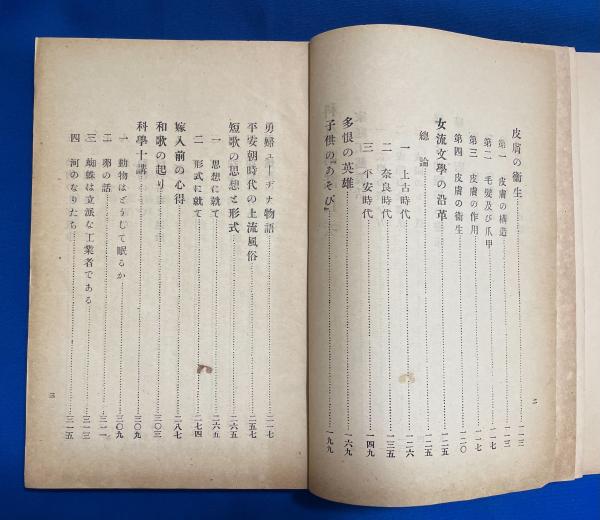 皮膚の衞生……一一三
第一 皮膚の構造……一一三
第二 毛髮及び爪甲……一一七
第三 皮膚の作用……一一七
第四 皮膚の衞生……一二〇
女流文學の沿革……一二五
總論……一二五
一 上古時代……一二六
二 奈良時代……一三五
三 平安時代……一四九
多恨の英雄……一六九
子供の『あそび』……一九九
二
勇婦ユーヂナ物語……二一七
平安朝時代の上流風俗……二五七
短歌の思想と形式……二六五
一 思想に就て……二六五
二 形式に就て……二七四
嫁入前の心得……二八七
和歌の起り……三〇三
科學十講……三〇九
一 動物はどうして眠るか……三〇九
二 卵の話……三一一
三 蜘蛛は立派な工業者である……三一三
四 河のなりたち……三一五
三